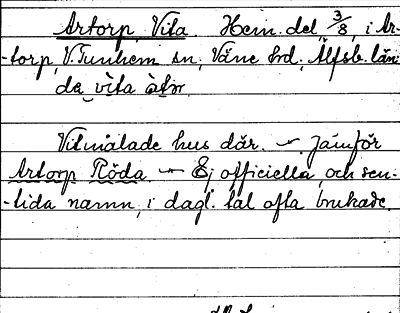 Artorp, Vita. Hem. del 3/8, i Ar-
-torp, V. Tunhem sn, Väne hrd, Älfsb. län
da vita
Vitmålade hus där. — Jämför
Artorp Röda. — Ej officiella, och sen-
-tida namn, i dagl. tal ofta brukade.